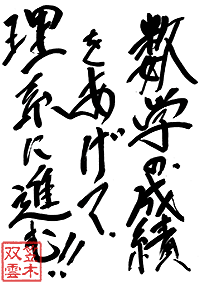 数学の成績
をあげて、
理系に進む!!
笠木
双雲